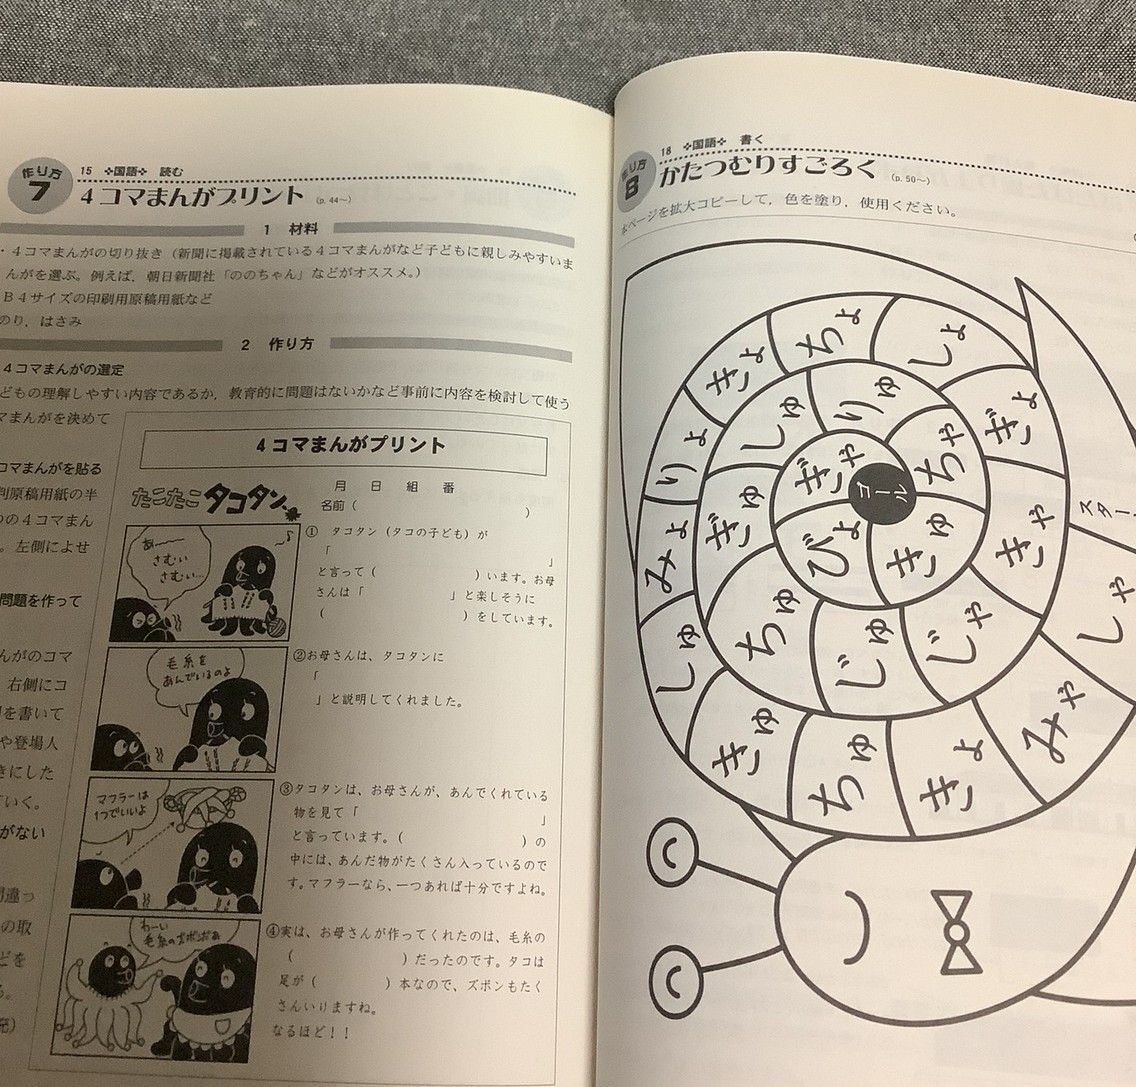 作り方
7
15 ✧国語✧ 読む
4コマまんがプリント (p. 44～)
1 材料
・4コマまんがの切り抜き(新聞に掲載されている4コマまんがなど子どもに親しみやすいま
んがを選ぶ。例えば,朝日新聞社「ののちゃん」などがオススメ。)
B4サイズの印刷用原稿用紙など
のり,はさみ
2 作り方
4コマまんがの選定
どもの理解しやすい内容であるか,教育的に問題はないかなど事前に内容を検討して使う
マまんがを決めて
コマまんがを貼る
判原稿用紙の半
つの4コマまん
。左側によせ
問題を作って
んがのコマ
右側にコ
を書いて
や登場人
きにした
いく。
がない
間違っ
の取
どを
る。
発)
4コマまんがプリント
月 日 組 番
名前( )
たこたこタコタン
あー
さむい
さむい…
①タコタン(タコの子ども)が
「 」
と言って( )います。お母
さんは「 」と楽しそうに
( )をしています。
毛糸を
あんでいるのよ
②お母さんは、タコタンに
「
」と説明してくれました。
マフラーは
1つでいいよ
③タコタンは、お母さんが、あんでくれている
物を見て「 」
と言っています。( )の
中には、あんだ物がたくさん入っているので
す。マフラーなら、一つあれば十分ですよね。
わーい
毛糸のズボンだぁ
④実は、お母さんが作ってくれたのは、毛糸の
( )だったのです。タコは
足が( )本なので、ズボンもたく
さんいりますね。
なるほど!!
作り方
8
18 ✧国語✧ 書く
かたつむりすごろく (p. 50～)
本ページを拡大コピーして,色を塗り,使用ください。
スター
しゃ
みゃ
きょ
ちゅ
きゅ
しゅ
みょ
りょ
きょ
ちょ
しょ
ぎょ
きゃ
じゃ
じゅ
ちゅ
ぎゅ
しゅ
りゅ
ちゃ
きゅ
びょ
ぎゃ
ゴール